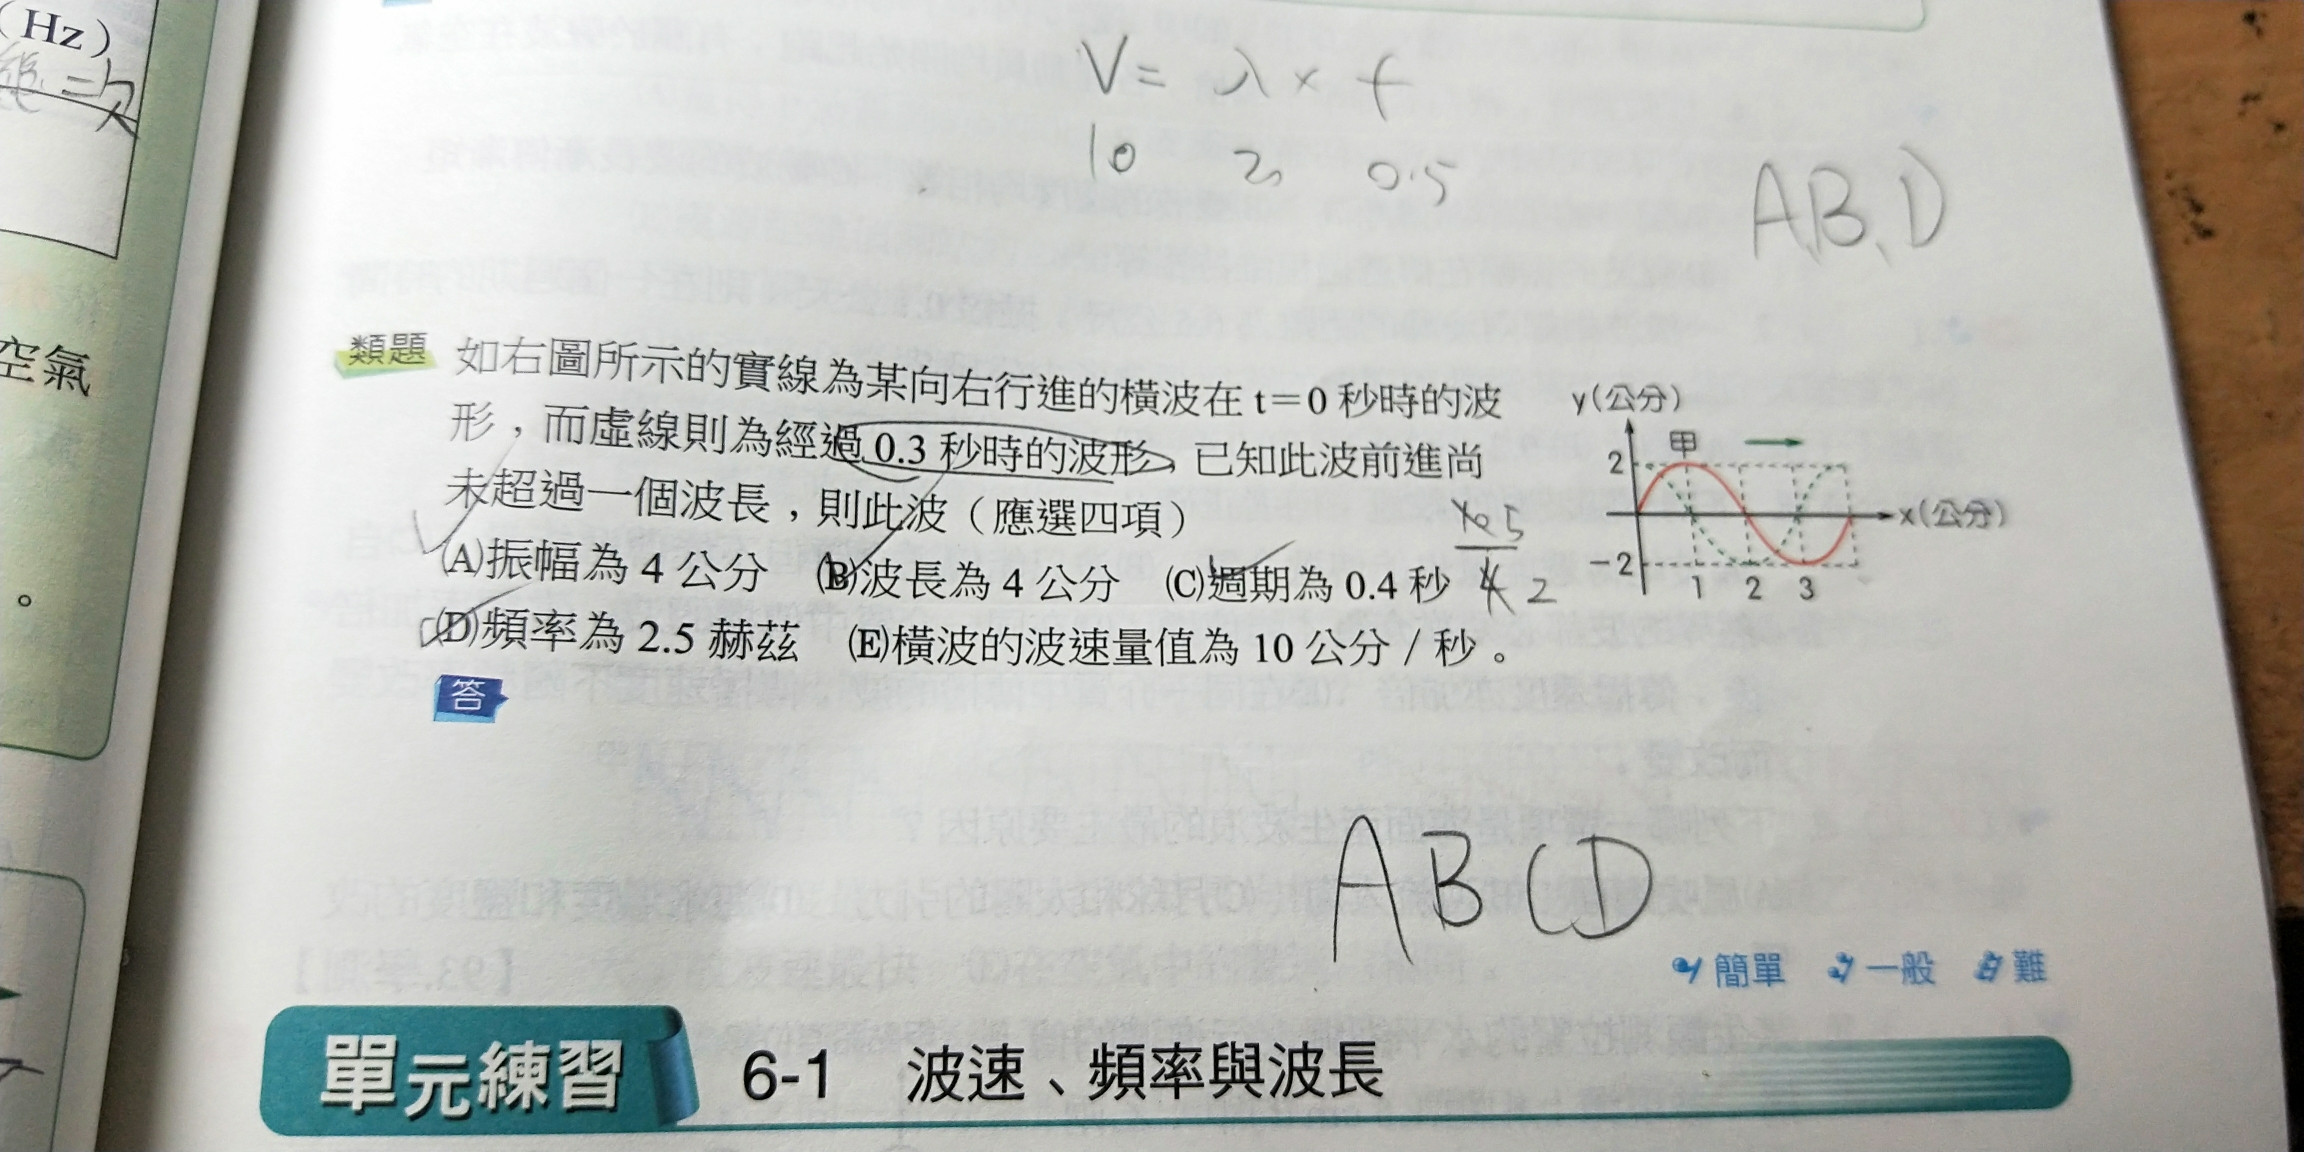 (Hz)
空氣
。
V = λ × f
10 2 0.5
A,B,D
類題 如右圖所示的實線為某向右行進的橫波在 t=0 秒時的波
形,而虛線則為經過 0.3 秒時的波形,已知此波前進尚
未超過一個波長,則此波(應選四項)
(A)振幅為 4 公分 (B)波長為 4 公分 (C)週期為 0.4 秒
(D)頻率為 2.5 赫茲 (E)橫波的波速量值為 10 公分/秒。
y(公分)
甲
2
x(公分)
-2
1 2 3
答
ABCD
簡單 一般 難
單元練習 6-1 波速、頻率與波長